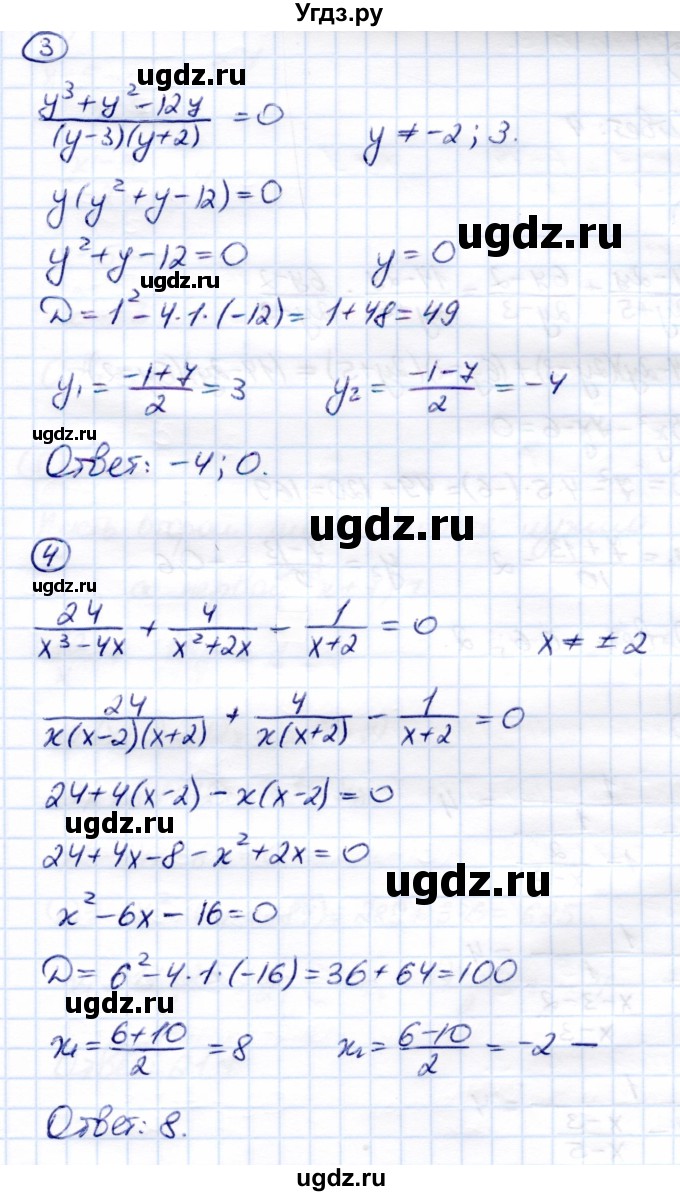 Угдз.ру
3
ugdz.ru
(y³+y²-12y)/((y-3)(y+2)) = 0    y ≠ -2; 3.
y(y²+y-12)=0
ugdz.ru
y²+y-12=0    y=0
ugdz.ru
D=1²-4·1·(-12)= 1+48=49
y₁ = (-1+7)/2 = 3    y₂ = (-1-7)/2 = -4
ugdz.ru
Ответ: -4; 0.
ugdz.ru
4
ugdz.ru
24/(x³-4x) + 4/(x²+2x) - 1/(x+2) = 0    x ≠ ±2
24/(x(x-2)(x+2)) + 4/(x(x+2)) - 1/(x+2) = 0
24+4(x-2)-x(x-2)=0
ugdz.ru
24+4x-8-x²+2x=0
ugdz.ru
x²-6x-16=0
D= 6²-4·1·(-16)=36+64=100
ugdz.ru
x₁=(6+10)/2 = 8    x₂=(6-10)/2 = -2 —
Ответ: 8.
ugdz.ru